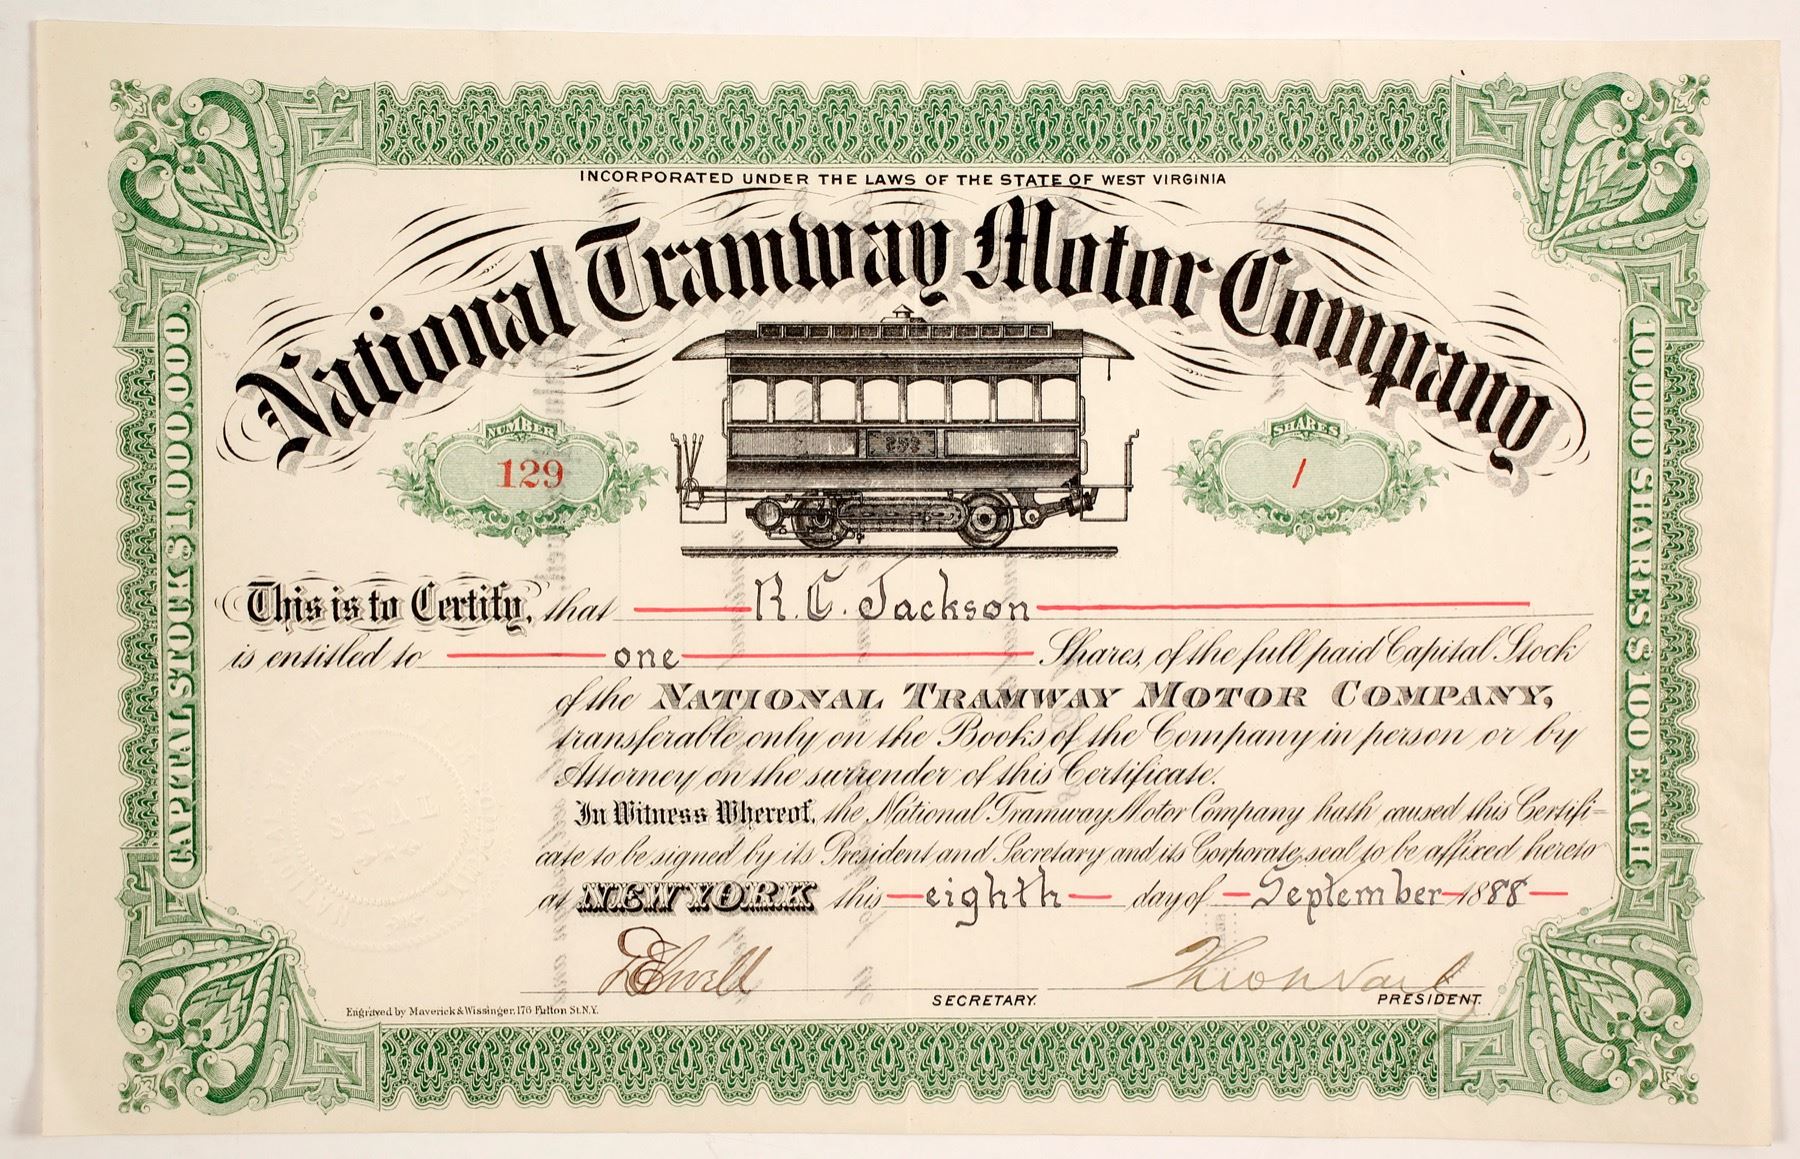 INCORPORATED UNDER THE LAWS OF THE STATE OF WEST VIRGINIA
National Tramway Motor Company
NUMBER
129
SHARES
1
252
CAPITAL STOCK $1,000,000.
10,000 SHARES $100 EACH.
This is to Certify, that R. C. Jackson
is entitled to one Shares, of the full paid Capital Stock
of the NATIONAL TRAMWAY MOTOR COMPANY,
transferable only on the Books of the Company in person or by
Attorney on the surrender of this Certificate.
In Witness Whereof, the National Tramway Motor Company hath caused this Certifi-
cate to be signed by its President and Secretary and its Corporate seal to be affixed hereto
at NEW YORK this eighth day of September 1888
SECRETARY.
PRESIDENT.
Engraved by Maverick & Wissinger, 176 Fulton St. N.Y.